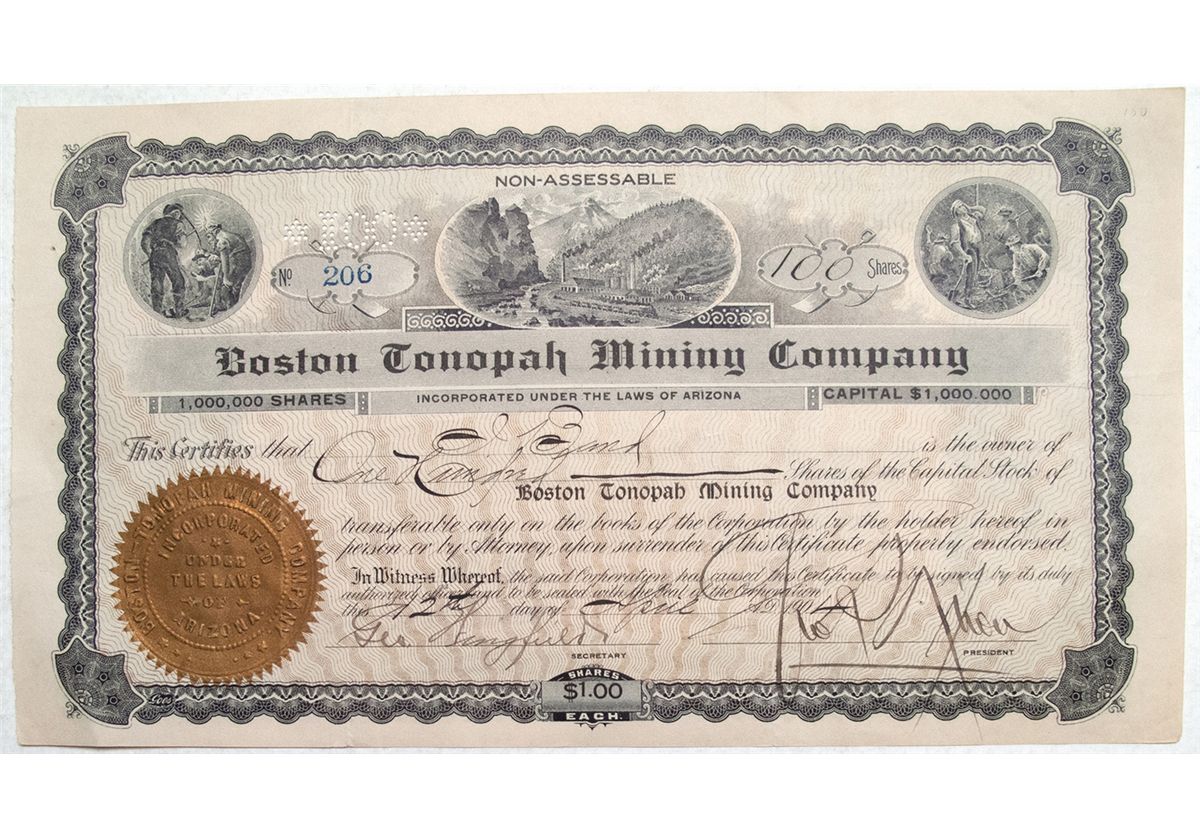 150
NON-ASSESSABLE
*100*
No 206
100 Shares
Boston Tonopah Mining Company
1,000,000 SHARES
INCORPORATED UNDER THE LAWS OF ARIZONA
CAPITAL $1,000.000
This Certifies that is the owner of
One Hundred Shares of the Capital Stock of
Boston Tonopah Mining Company
transferable only on the books of the Corporation by the holder hereof in
person or by Attorney, upon surrender of this Certificate properly endorsed.
In Witness Whereof, the said Corporation has caused this Certificate to be signed by its duly
authorized officers and to be sealed with the Seal of the Corporation
this 12th day of April A.D. 1904
Geo Wingfield
SECRETARY
PRESIDENT
BOSTON-TONOPAH MINING COMPANY
INCORPORATED
UNDER
THE LAWS
OF
ARIZONA
SHARES
$1.00
EACH.